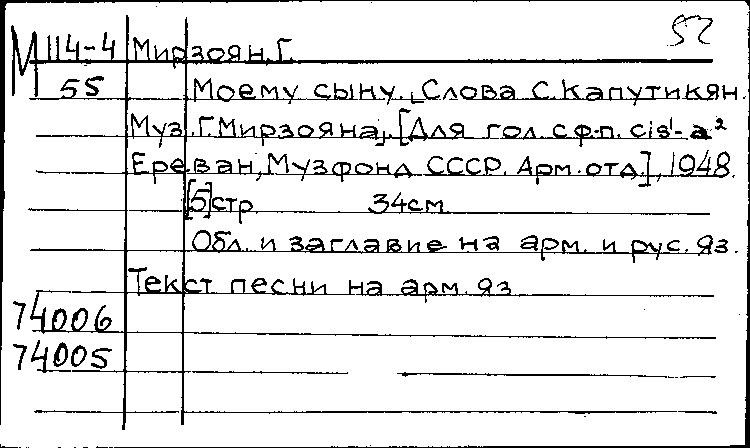 52
М 114-4 Мирзоян, Г.
55 Моему сыну. [Слова С. Капутикян.
Муз. Г. Мирзояна]. [Для гол. с ф-п. cis¹-a²
Ереван, Музфонд СССР. Арм. отд.], 1948.
[5] стр. 34см.
Обл. и заглавие на арм. и рус. яз.
Текст песни на арм. яз.
74006
74005